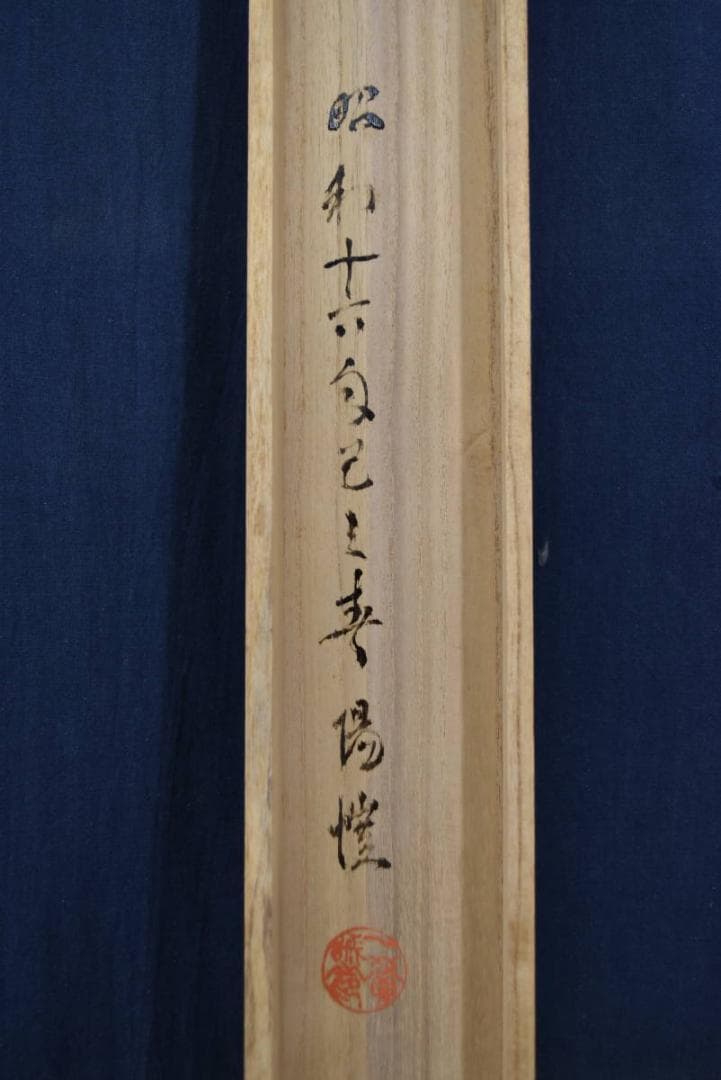 昭和十六巳之春 陽